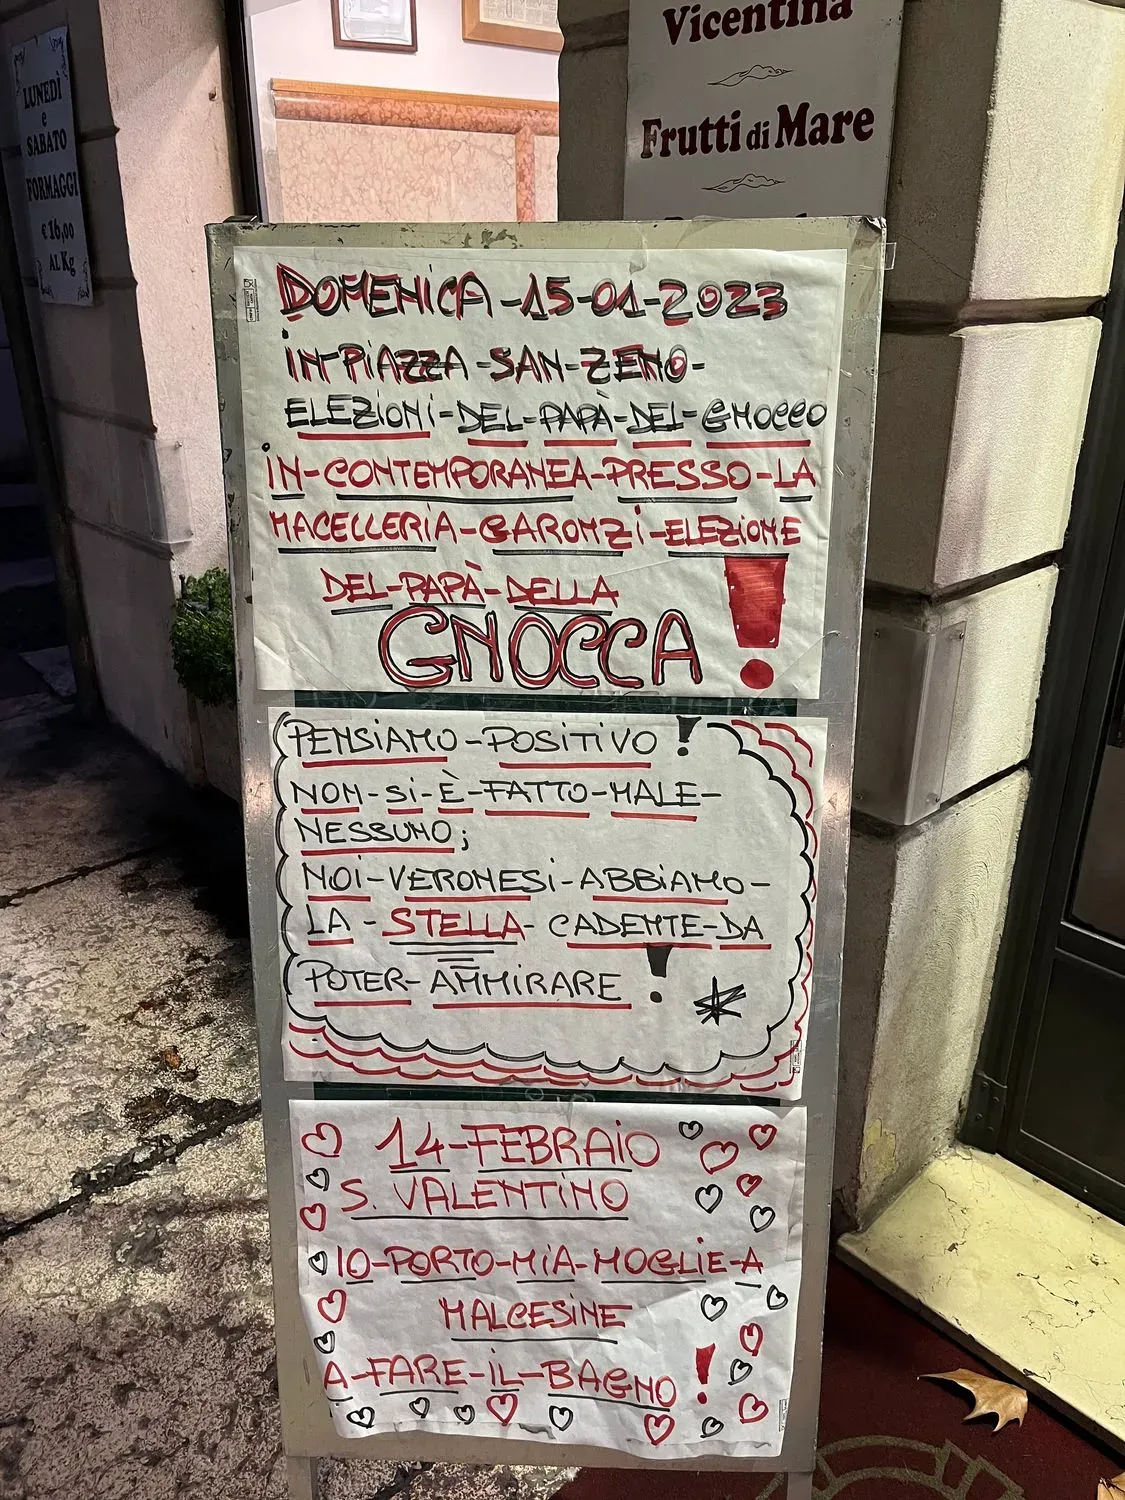 LUNEDÌ
e
SABATO
FORMAGGI
€ 16,00
AL Kg
Vicentina
Frutti di Mare
DOMENICA-15-01-2023
IN-PIAZZA-SAN-ZENO-
ELEZIONI-DEL-PAPÀ-DEL-GNOCCO
IN-CONTEMPORANEA-PRESSO-LA
MACELLERIA-GARONZI-ELEZIONE
DEL-PAPÀ-DELLA
GNOCCA!
PENSIAMO-POSITIVO!
NON-SI-È-FATTO-MALE-
NESSUNO;
NOI-VERONESI-ABBIAMO-
LA-STELLA-CADENTE-DA
POTER-AMMIRARE!
14-FEBBRAIO
S. VALENTINO
IO-PORTO-MIA-MOGLIE-A
MALCESINE
A-FARE-IL-BAGNO!